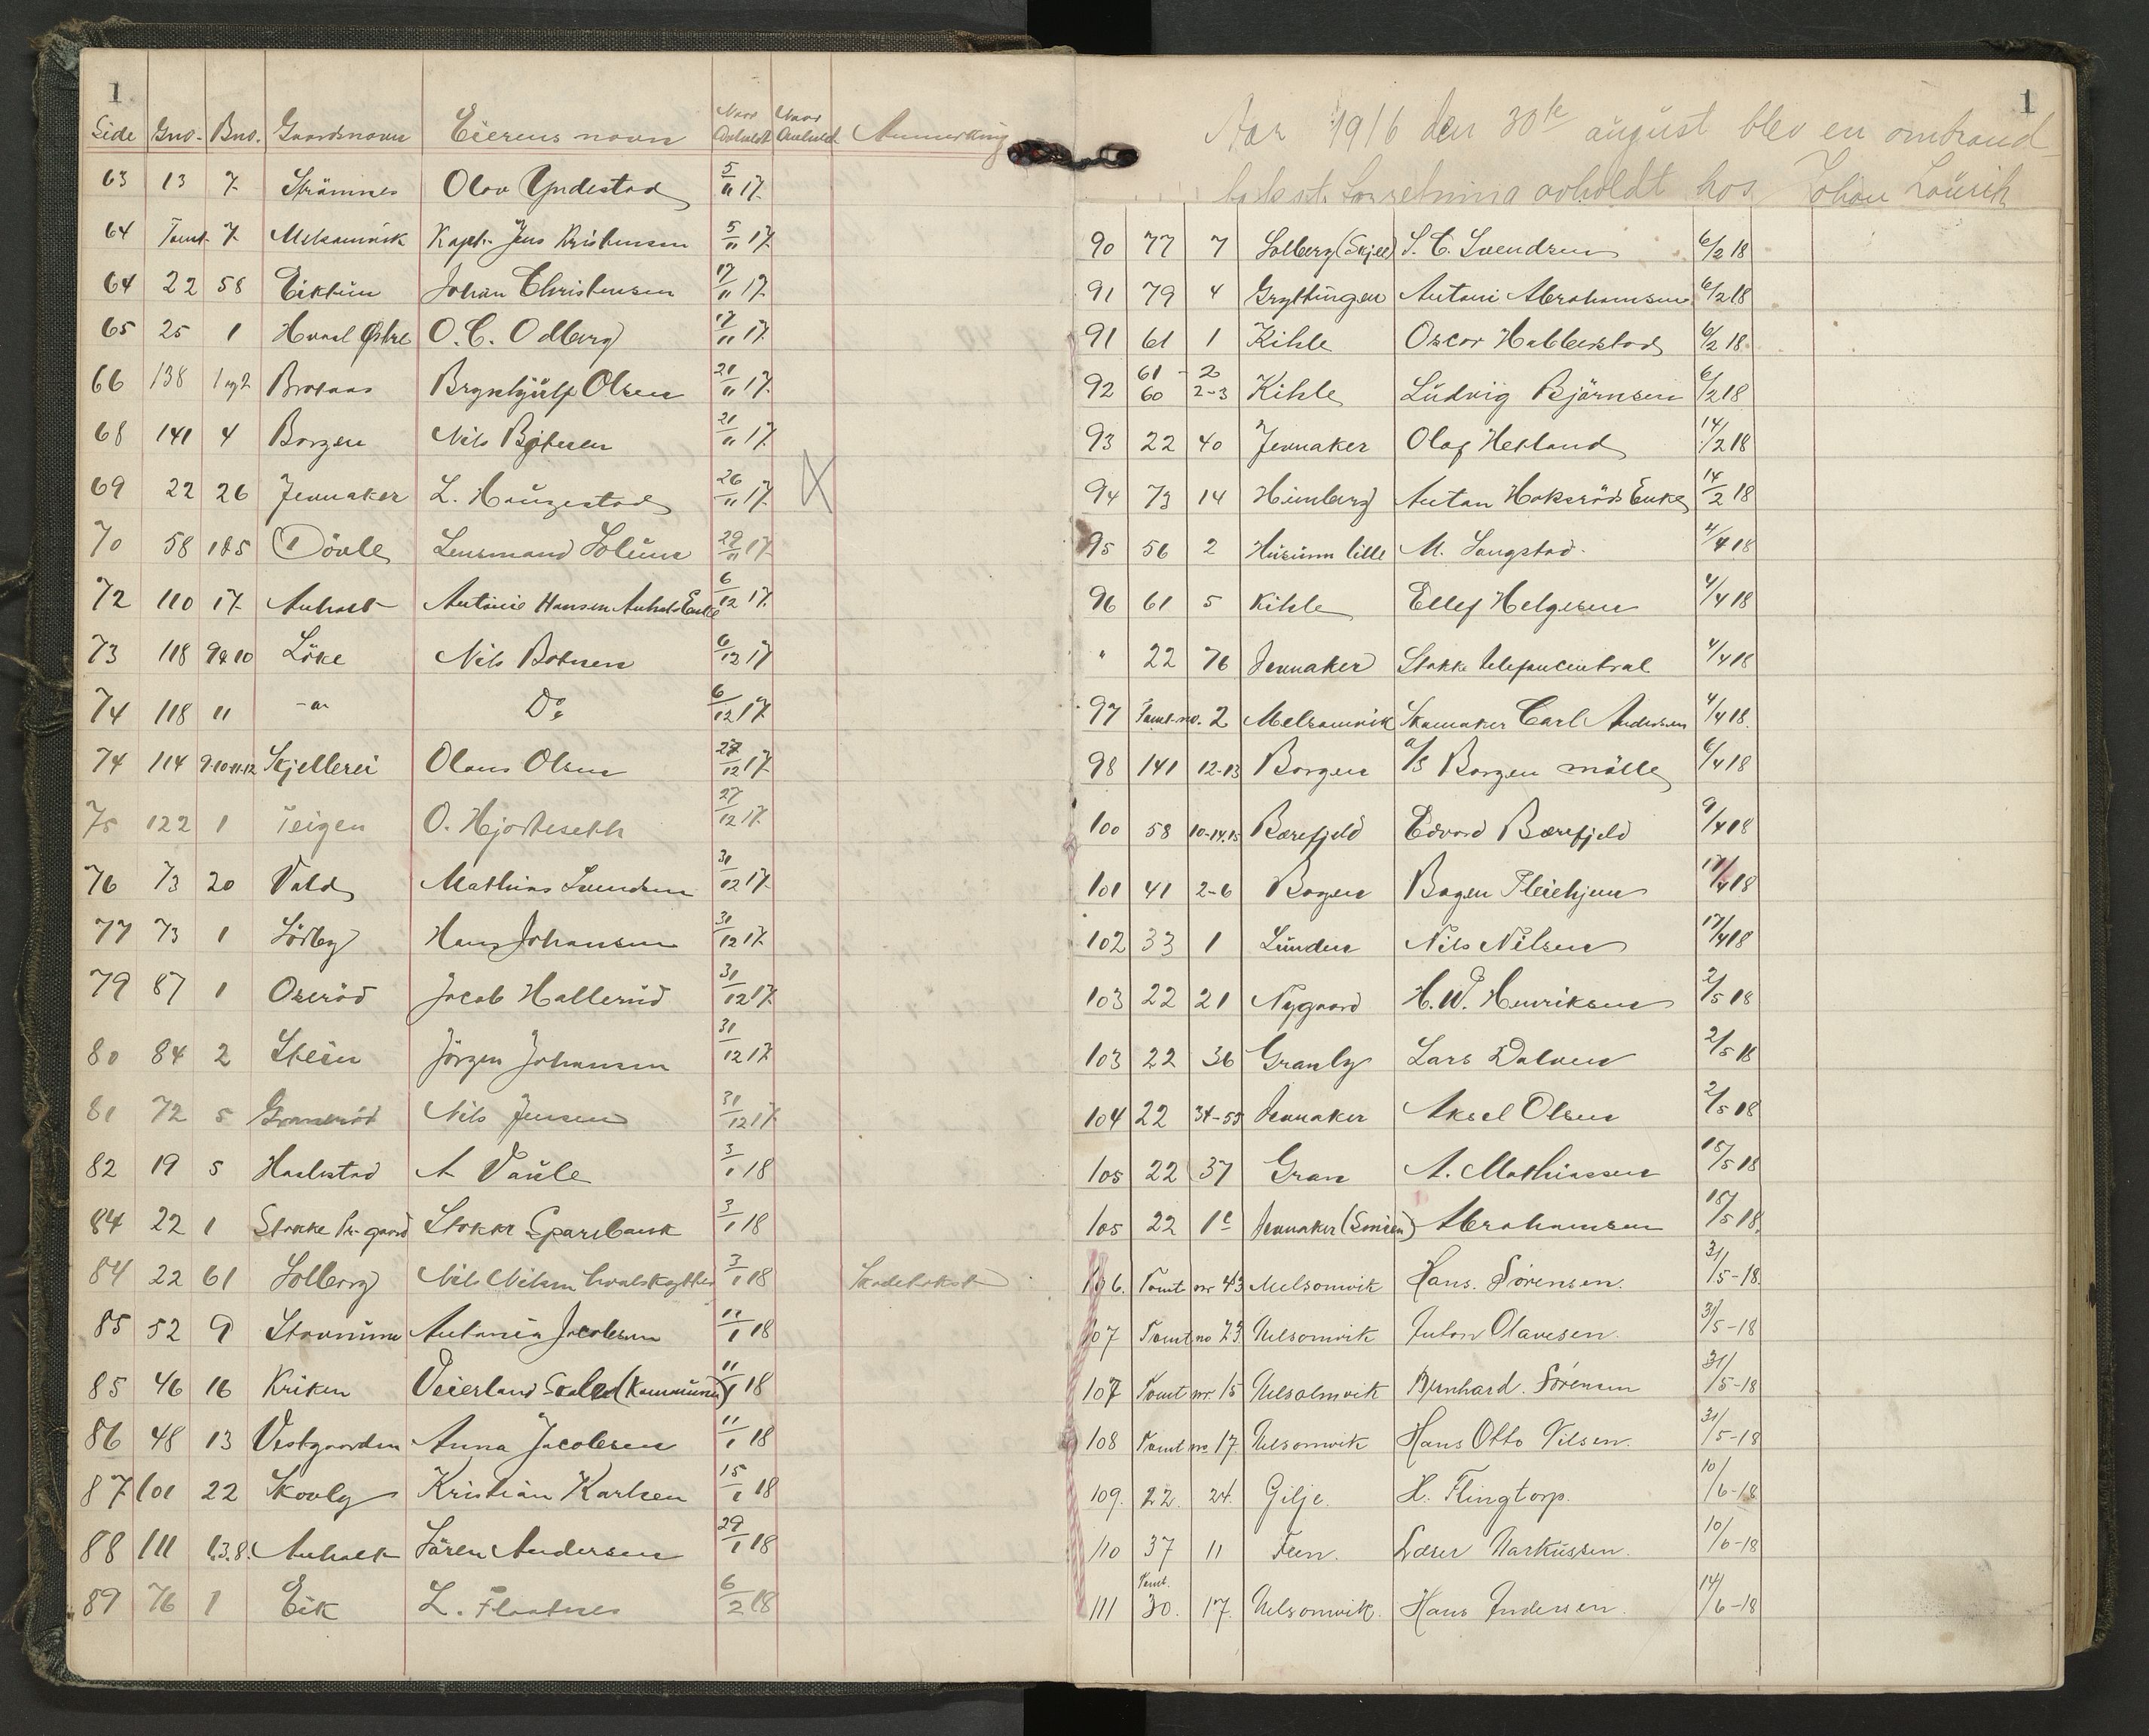 1
Side Gno. Bno. Gaardsnavn Eierens navn Naar Avholdt Naar Anmerkning
63 13 7 Strömnes Olav Yndestad 5/11 17.
64 Tomt. 7 Melsomvik Kapt. Jens Kristensen 5/11 17.
64 22 58 Eiktun Johan Christensen 17/11 17.
65 25 1 Hvaal Østre O. C. Odberg 17/11 17.
66 138 1 og 2 Braaaas Brynhjülf Olsen 21/11 17.
68 141 4 Borgen Nils Botnen 21/11 17.
69 22 26 Jennaker L. Haugestad 26/11 17. X
70 58 1&5 Dövle Lensmand Solüm 29/11 17.
72 110 17 Anholt Antonie Hansen Anholt Enke 6/12 17.
73 118 9&10 Löke Nils Botnen 6/12 17
74 118 11 -"- Do 6/12 17.
74 114 9-10-11-12 Skjellerei Olaus Olsen 27/12 17.
75 122 1 Teigen O. Hjorteseth 27/12 17.
76 73 20 Vold Mathias Svendsen 31/12 17.
77 73 1 Sörby Hans Johansen 31/12 17.
79 87 1 Oseröd Jacob Hallerüd 31/12 17.
80 84 2 Stein Jörgen Johansen 31/12 17.
81 72 5 Nils Jensen 31/12 17.
82 19 5 A Vaüle 3/1 18
84 22 1 Stokke Pr.gaard Stokke Sparebank 3/1 18
84 22 61 Solberg Nils Nilsen hvalskytter 3/1 18 Skadetakst
85 52 9 Antonia Jacobsen 11/1 18
85 46 16 Kriken Veierland Scole (Kommünen) 11/1 18
86 48 13 Vestgaarden Anna Jacobsen 11/1 18
87 101 22 Skovly Kristian Karlsen 15/1 18
88 111 1,3,8. Anholt Sören Andersen 29/1 18
89 76 1 Eik L. Flaatnes 6/2 18
1
Aar 1916 den 30te august blev en ombrand-
avholdt hos Johan Laurih
90 77 7 Solberg (Skjee) S. C. Svendsen 6/2 18
91 79 4 Gryttingen Antoni Abrahamsen 6/2 18
91 61 1 Kihle Oscar Habberstad 6/2 18.
92 61 - 2 60 2-3 Kihle Lüdvig Björnsen 6/2 18
93 22 40 Jennaker Olaf Hetland 14/2 18
94 73 14 Himberg Anton Hokseröds Enke 14/2 18
95 56 2 Hüsüm lille M. Langstad. 4/4 18
96 61 5 Kihle Ellef Helgesen 4/4 18
" 22 76 Jennaker Stokke telefoncentral 4/4 18
97 Tomt no. 2 Melsomvik Skomaker Carl Andersen 4/4 18.
98 141 12-13 Borgen A/S Borgen mölle 6/4 18
100 58 10-14.15 Bærefjeld Edvard Bærefjeld 9/4 18
101 41 2-6 Bogen Bogen Pleiehjem 17/4 18
102 33 1 Lünden Nils Nilsen 17/4 18
103 22 21 Nygaard H. W. Henriksen 2/5 18
103 22 36 Granly Lars Dalven 2/5 18
104 22 34-55 Jennaker Aksel Olsen 2/5 18
105 22 37 Gran A. Mathiassen 15/5 18
105 22 1c Jennaker (Smien) Abrahamsen 15/5 18.
106. Tomt nr 43 Melsomvik Hans. Sörensen. 31/5-18.
107 Tomt no 23. Melsomvik Anton Olavesen. 31/5-18
107 Tomt nr 15 Melsolmvik Bernhard. Sörensen 31/5-18
108 Tomt no 17. Melsomvik Hans Otto Nilsen. 31/5-18
109. 22. 24. Gilje. H. Flingtorp. 10/6-18
110 37 11 Feen. Læser Markussen. 10/6-18
111 Tomt. 30. 17. Melsomvik. Hans Andersen. 14/6-18